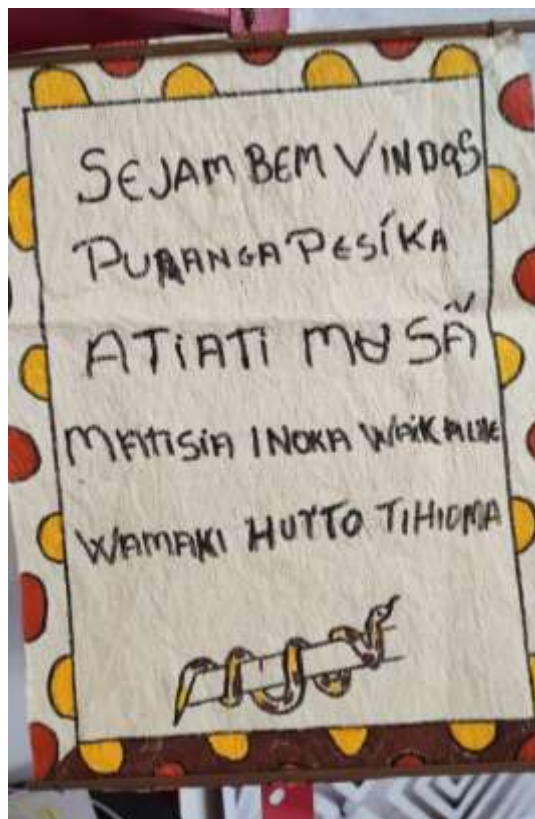 SEJAM BEM VINDOS
PURANGA PESÍKA
ATIATI MɄSÃ
MATISIA INOKA WAIKALHE
WAMAKI HUTTO TIHIOMA